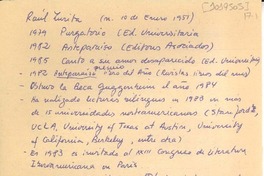 [209505]
Raúl Zurita (n. 10 de Enero 1951)
1979 Purgatorio (Ed. Universitaria
1982 Anteparaiso (Editores Asociados)
1985 Canto a su amor desaparecido (Ed. Universitaria)
premio
- 1982 Anteparaiso libro del Año (Revistas libros del mes)
- Obtuvo la Beca Guggenheim el año 1984
- Ha realizado lecturas bilingües en 1983 en más
de 15 universidades norteamericanas (Stanford,
UCLA, University of Texas at Austin, University
of California, Berkeley, entre otras)
- En 1983 es invitado al XXIII Congreso de Literatura
Iberoamericana en París